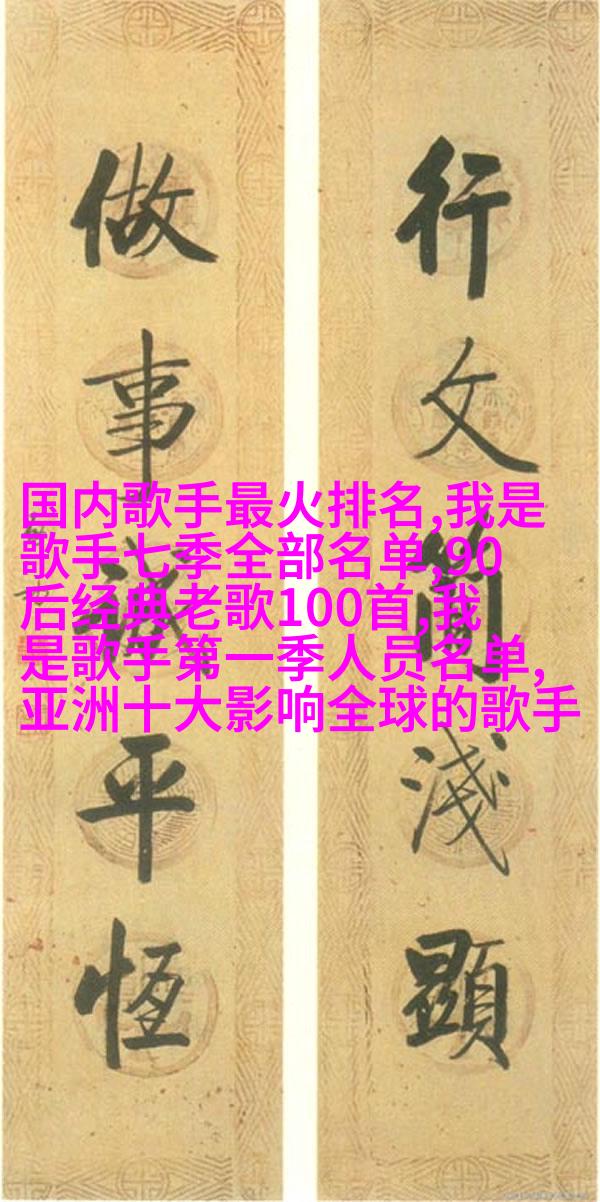 行文簡淺顯
做事誠平恆
国内歌手最火排名,我是
歌手七季全部名单,90
后经典老歌100首,我
是歌手第一季人员名单,
亚洲十大影响全球的歌手